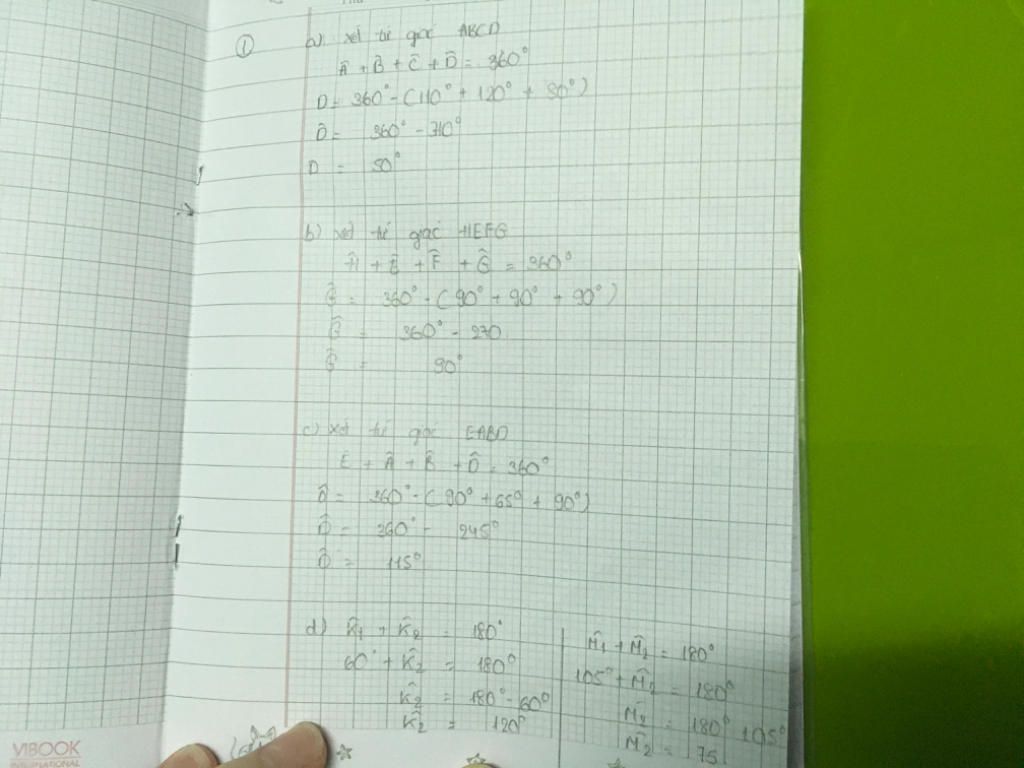 ①
a) xét tứ giác ABCD
Â + B̂ + Ĉ + D̂ = 360°
D = 360° - (110° + 120° + 80°)
D̂ = 360° - 310°
D = 50°
b) xét tứ giác HEFG
Ĥ + Ê + F̂ + Ĝ = 360°
Ĝ = 360° - (90° + 90° + 90°)
Ĝ = 360° - 270
Ĝ = 90°
c) xét tứ giác EABD
E + Â + B̂ + D̂ = 360°
D̂ = 360° - (90° + 65° + 90°)
D̂ = 360° - 245°
D̂ = 115°
d) K̂₁ + K̂₂ = 180°
60° + K̂₂ = 180°
K̂₂ = 180° - 60°
K̂₂ = 120°
M̂₁ + M̂₂ = 180°
105° + M̂₂ = 180°
M̂₂ = 180° 105°
M̂₂ = 75
VIBOOK
INTERNATIONAL